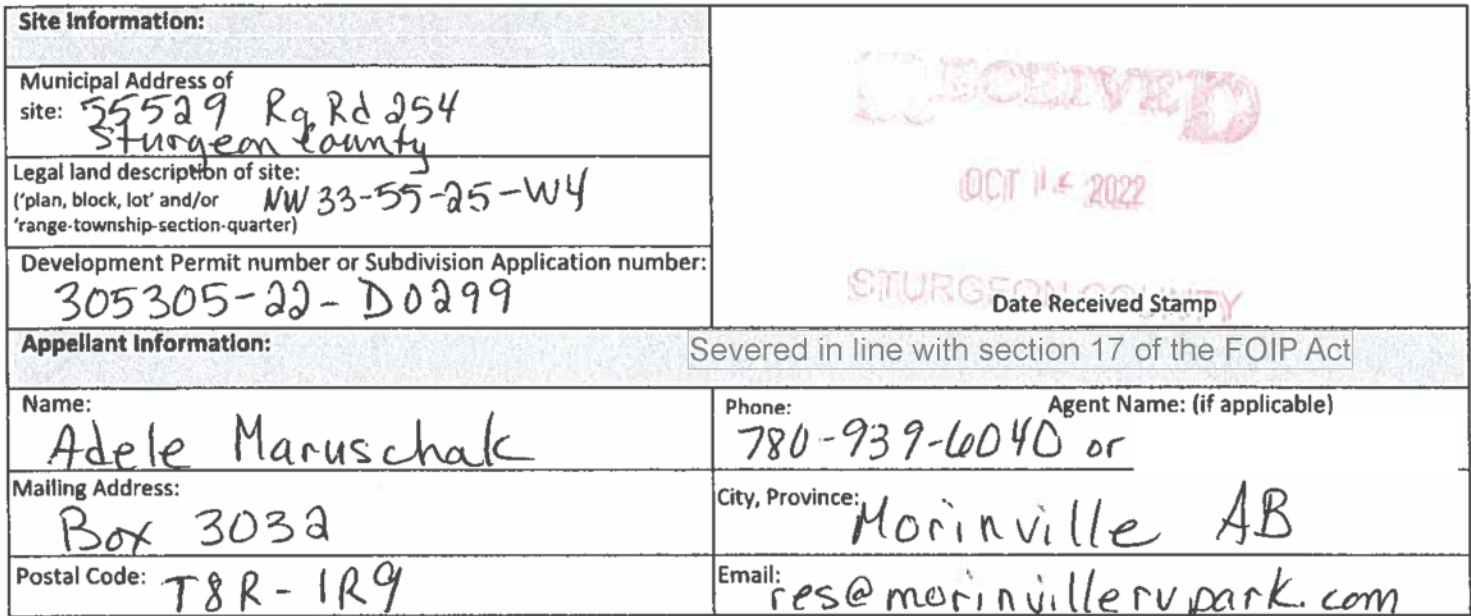 Site Information:
Municipal Address of
site: 55529 Rg Rd 254
Sturgeon County
Legal land description of site:
('plan, block, lot' and/or NW 33-55-25-W4
'range-township-section-quarter)
Development Permit number or Subdivision Application number:
305305-22-D0299
RECEIVED
OCT 14 2022
STURGEON COUNTY
Date Received Stamp
Appellant Information:
Severed in line with section 17 of the FOIP Act
Name:
Adele Maruschak
Phone:
780-939-6040 or
Agent Name: (if applicable)
Mailing Address:
Box 3032
City, Province: Morinville AB
Postal Code: T8R-1R9
Email: res@morinvillervpark.com